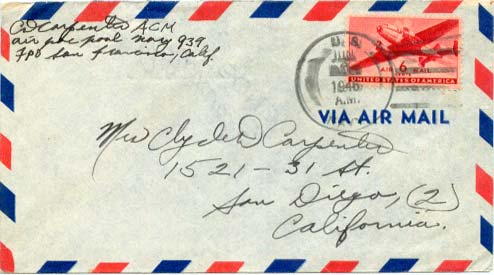 CD Carpenter ACM
air pac pool Navy 939
FPO San Francisco, Calif.
U.S.
JUN
1946
A.M.
AIR MAIL
6
UNITED STATES OF AMERICA
VIA AIR MAIL
Mrs Clyde D Carpenter
1521 - 31 St.
San Diego, (2)
California.